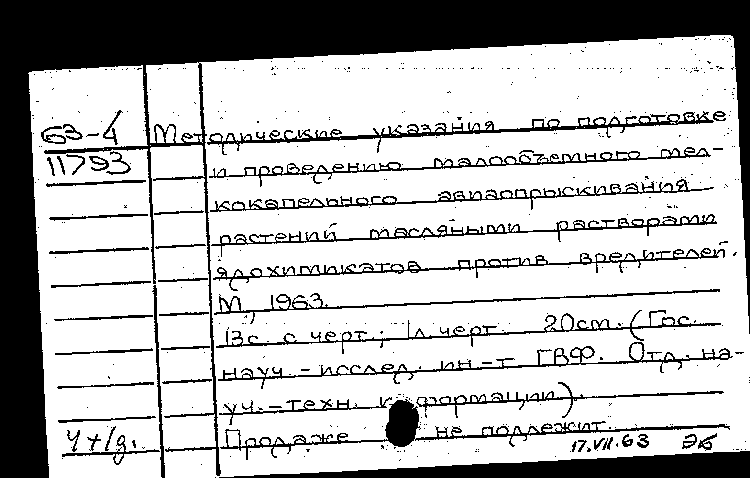 63-4 Методические указания по подготовке
11793 и проведению малообъемного мел-
кокапельного авиаопрыскивания
растений масляными растворами
ядохимикатов против вредителей.
М., 1963.
13с. с черт.; 1л. черт. 20см. (Гос.
науч.-исслед. ин-т ГВФ. Отд. на-
уч.-техн. информации).
Продаже не подлежит.
17.VII.63 ЭБ